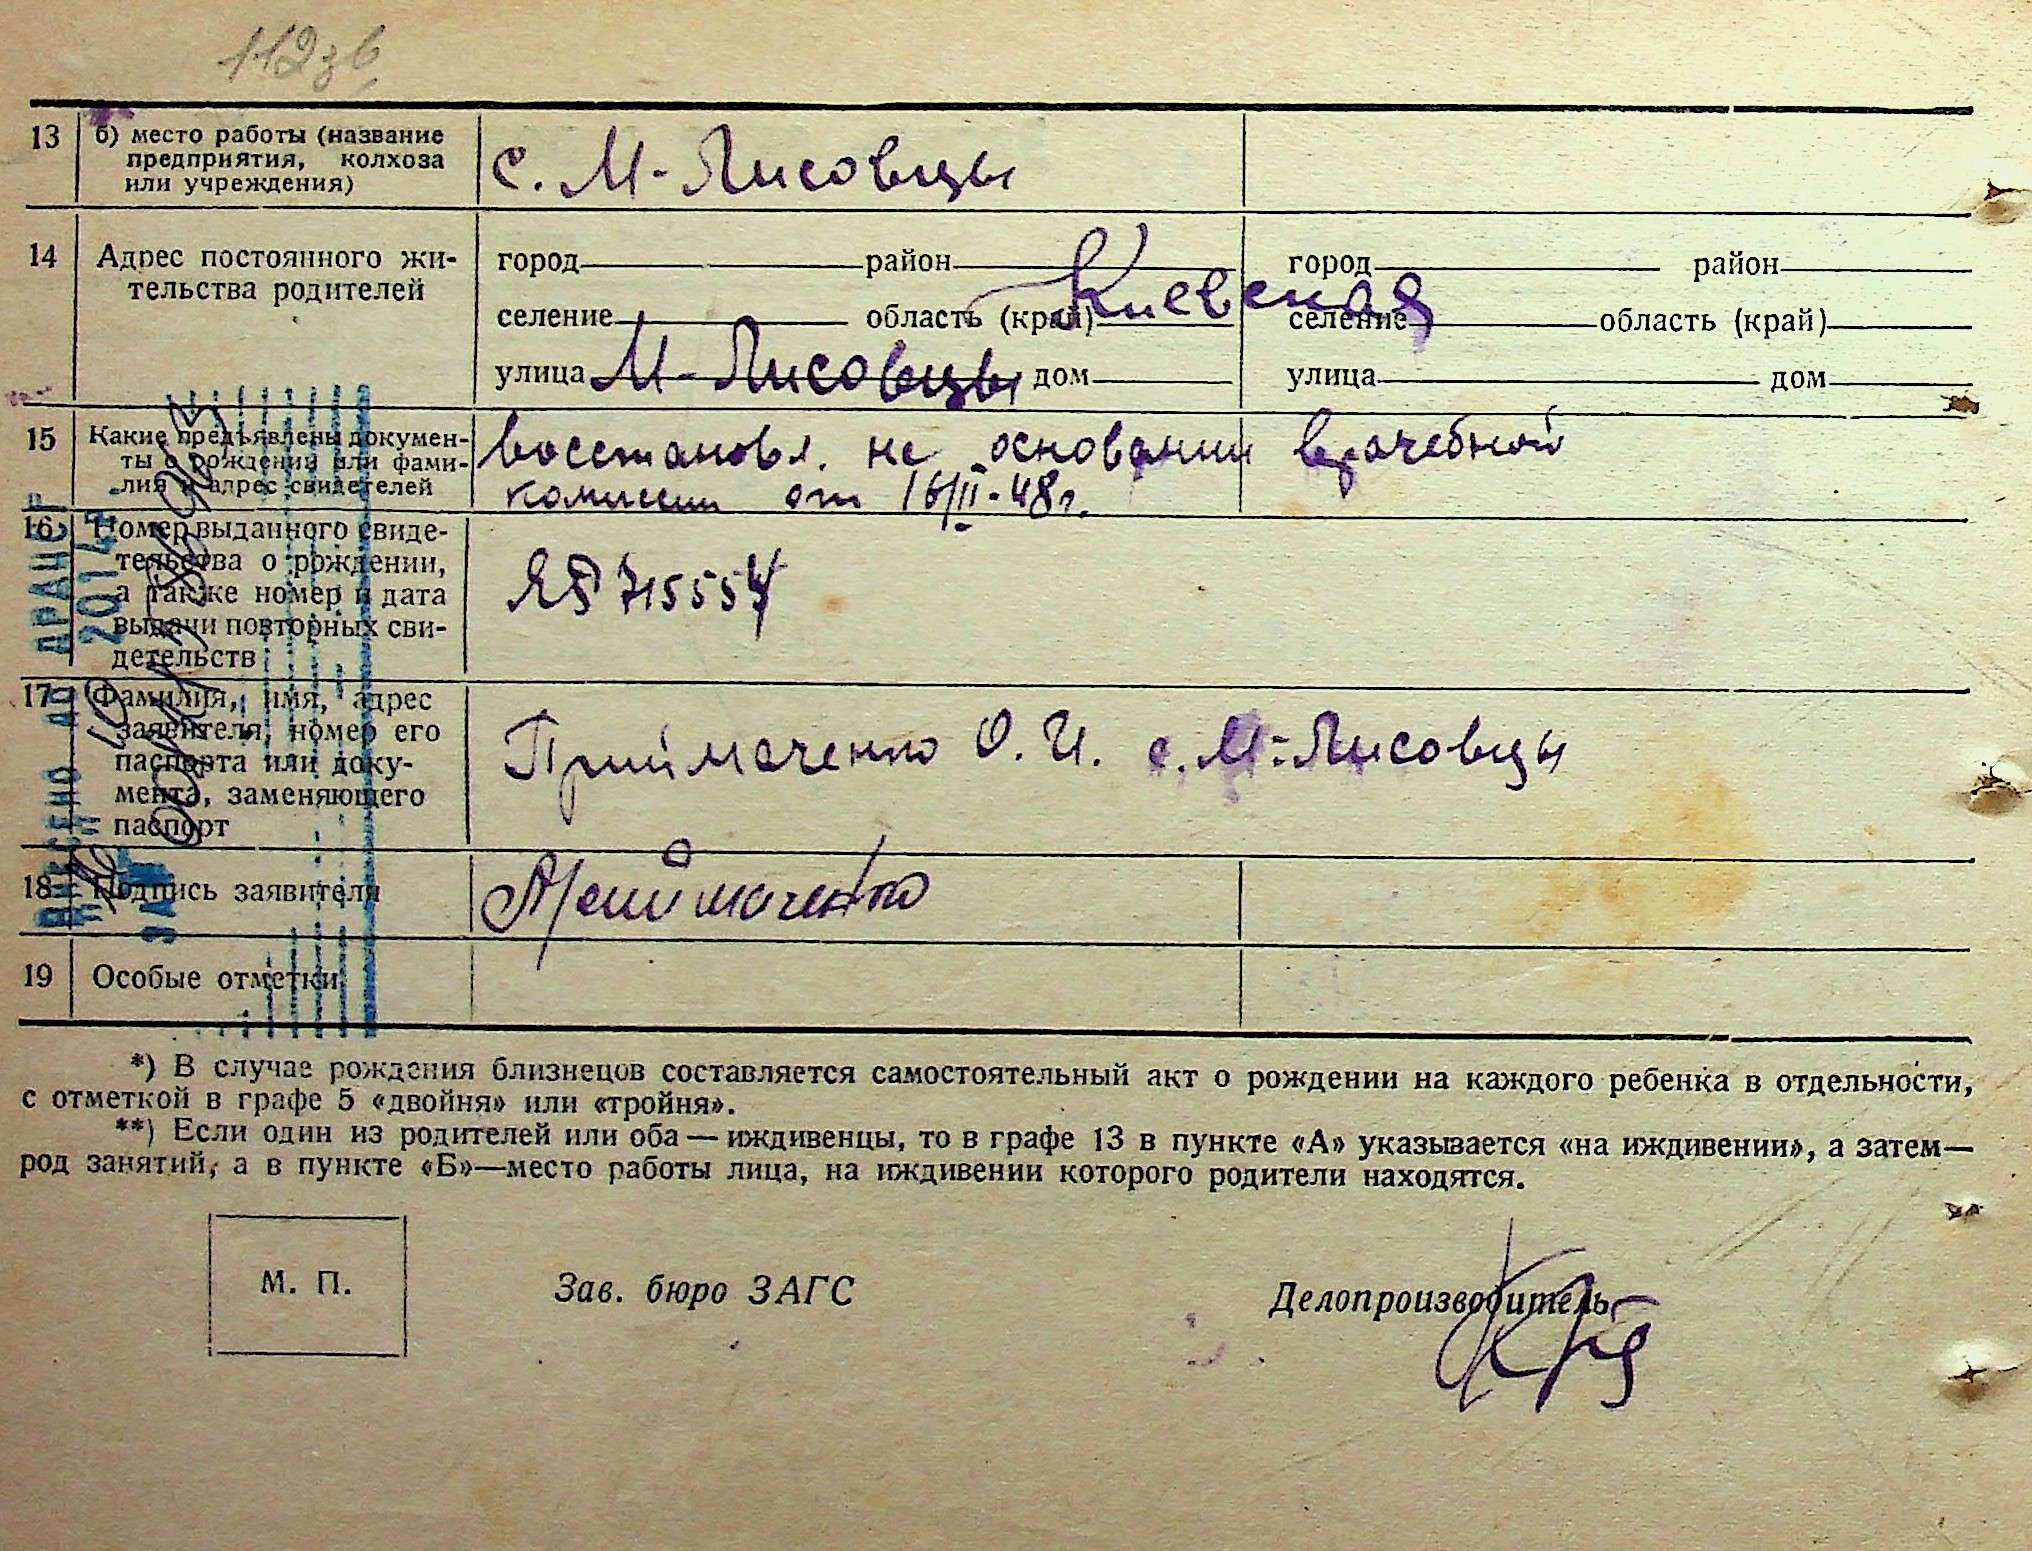 112зв
13 б) место работы (название
предприятия, колхоза
или учреждения)
с. М-Лисовцы
14 Адрес постоянного жи-
тельства родителей
город район город район
селение область (край) Киевская селение область (край)
улица М-Лисовцы дом улица дом
15 Какие предъявлены докумен-
ты о рождении или фами-
лия и адрес свидетелей
восстановл. на основании врачебной
комиссии от 16/II-48г.
16 Номер выданного свиде-
тельства о рождении,
а также номер и дата
выдачи повторных сви-
детельств
715557
17 Фамилия, имя, адрес
заявителя, номер его
паспорта или доку-
мента, заменяющего
паспорт
Приймаченко О. И. с. М-Лисовцы
18 Подпись заявителя
Приймаченко
19 Особые отметки
ВНЕСЕНО ДО ДРАЦСГ
2014
*) В случае рождения близнецов составляется самостоятельный акт о рождении на каждого ребенка в отдельности,
с отметкой в графе 5 «двойня» или «тройня».
**) Если один из родителей или оба — иждивенцы, то в графе 13 в пункте «А» указывается «на иждивении», а затем—
род занятий, а в пункте «Б»—место работы лица, на иждивении которого родители находятся.
М. П. Зав. бюро ЗАГС Делопроизводитель